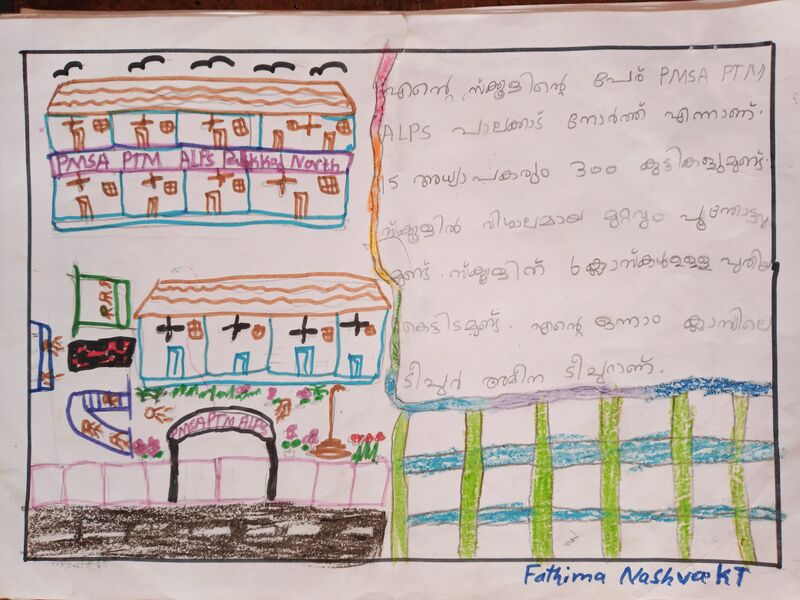 PMSA PTM ALPS Palakkad North
എന്റെ സ്ക്കൂളിന്റെ പേര് PMSA PTM
ALPS പാലക്കാട് നോർത്ത് എന്നാണ്.
15 അധ്യാപകരും 300 കുട്ടികളുമുണ്ട്.
സ്ക്കൂളിൽ വിശാലമായ മുറ്റവും പൂന്തോട്ടവു
മുണ്ട്. സ്ക്കൂളിന് 6 ക്ലാസ്കൾള്ള പുതിയ
കെട്ടിടമുണ്ട്. എന്റെ ഒന്നാം ക്ലാസിലെ
ടീച്ചർ അമിന ടീച്ചറാണ്.
PMSAPTM ALPS
Fathima Nashva KT